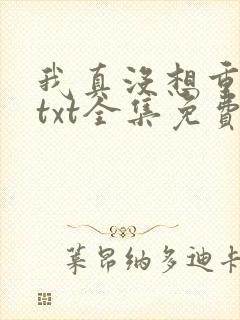 我真没想重
txt全集免费
莱昂纳多迪卡